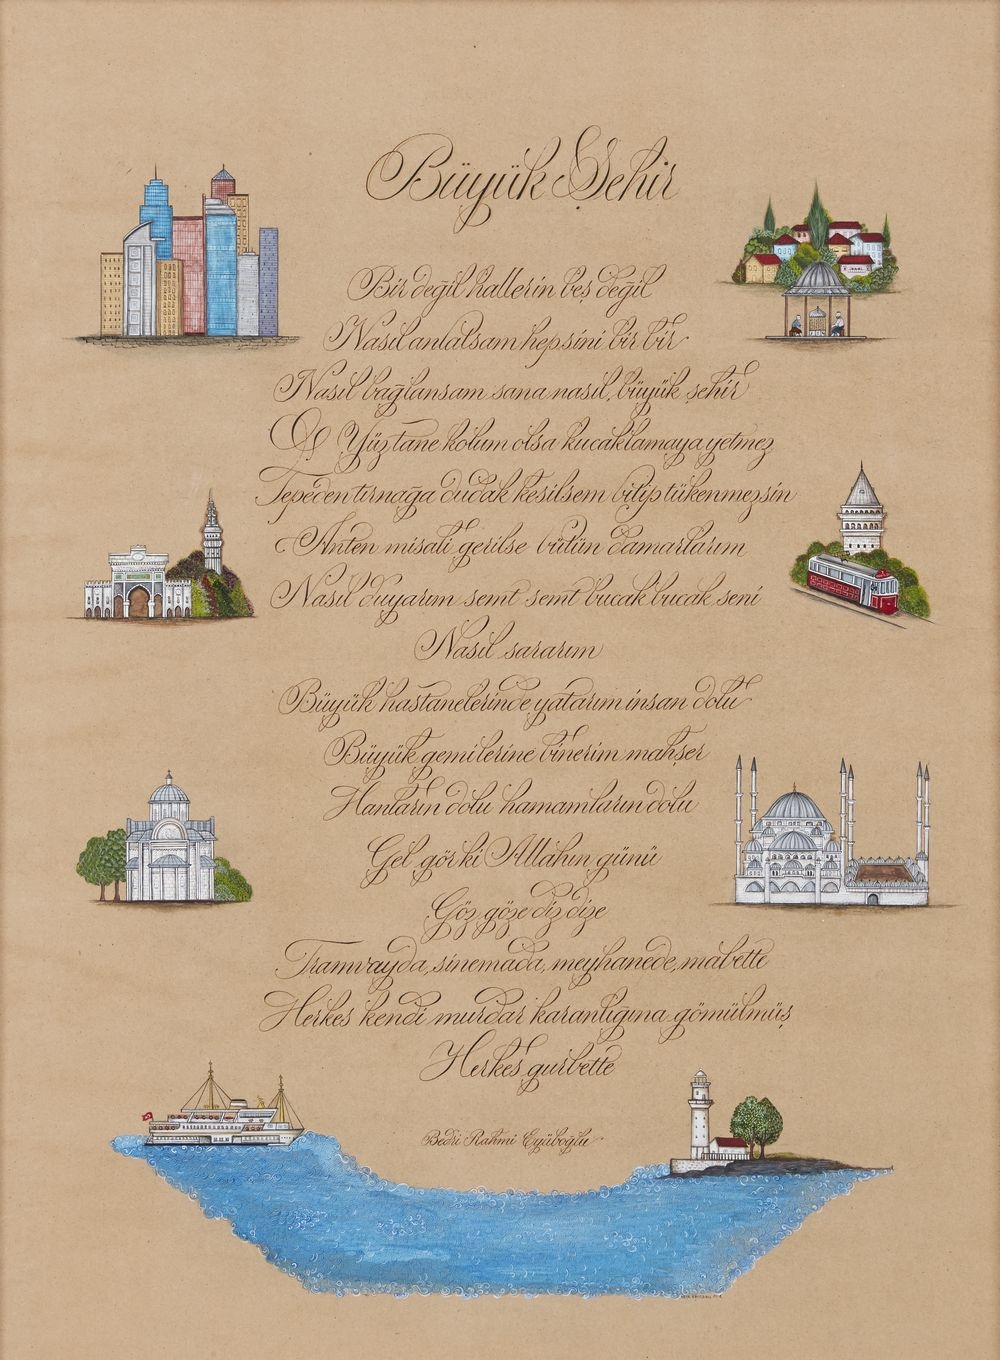 Büyük Şehir
Bir değil hallerin beş değil
Nasıl anlatsam hepsini bir bir
Nasıl bağlansam sana nasıl, büyük şehir
Of Yüz tane kolum olsa kucaklamaya yetmez
Tepeden tırnağa dudak kesilsem bitip tükenmezsin
Anten misali gerilse bütün damarlarım
Nasıl duyarım semt semt bucak bucak seni
Nasıl sararım
Büyük hastanelerinde yatarım insan dolu
Büyük gemilerine binerim mahşer
Hanların dolu hamamların dolu
Gel gör ki Allahın günü
Göz göze diz dize
Tramvayda, sinemada, meyhanede, mabette
Herkes kendi murdar karanlığına gömülmüş
Herkes gurbette
Bedri Rahmi Eyüboğlu